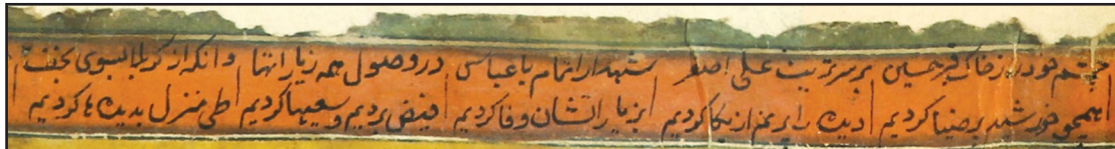 چشم خود را ز خاک قبر حسین بر سر تربت علی اصغر شهدا را تمام با عباس در وصول همه زیارتها وانکه از کربلا بسوی نجف
همچو خورشید پر ضیا کردیم دیده را پر نم از بکا کردیم بزیاراتشان وفا کردیم فیض بردیم و سعیها کردیم طی منزل بدیده ها کردیم